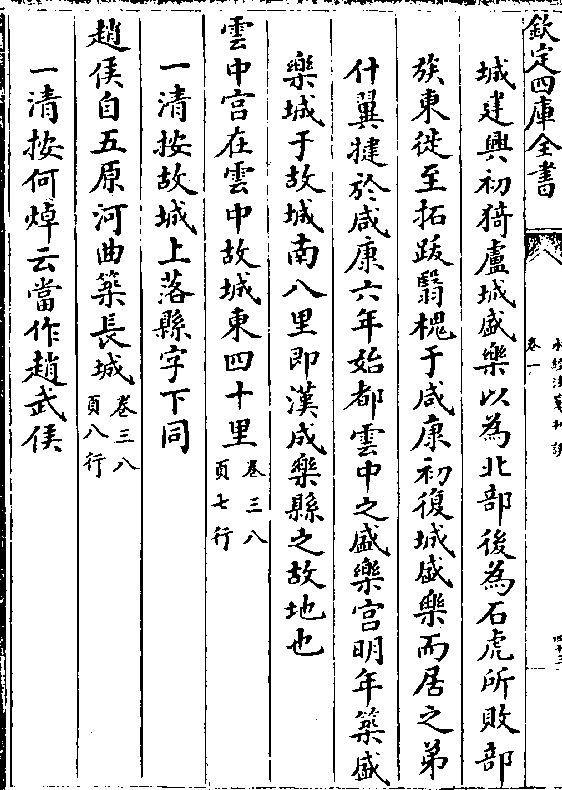 欽定四庫全書
水經注箋刊誤
卷一
城建興初猗盧城盛樂以為北部後為石虎所敗部
族東徙至拓跋翳槐于咸康初復城盛樂而居之弟
什翼犍於咸康六年始都雲中之盛樂宮明年築盛
樂城于故城南八里即漢成樂縣之故地也
雲中宮在雲中故城東四十里卷三八頁七行
一清按故城上落縣字下同
趙侯自五原河曲築長城卷三八頁八行
一清按何焯云當作趙武侯